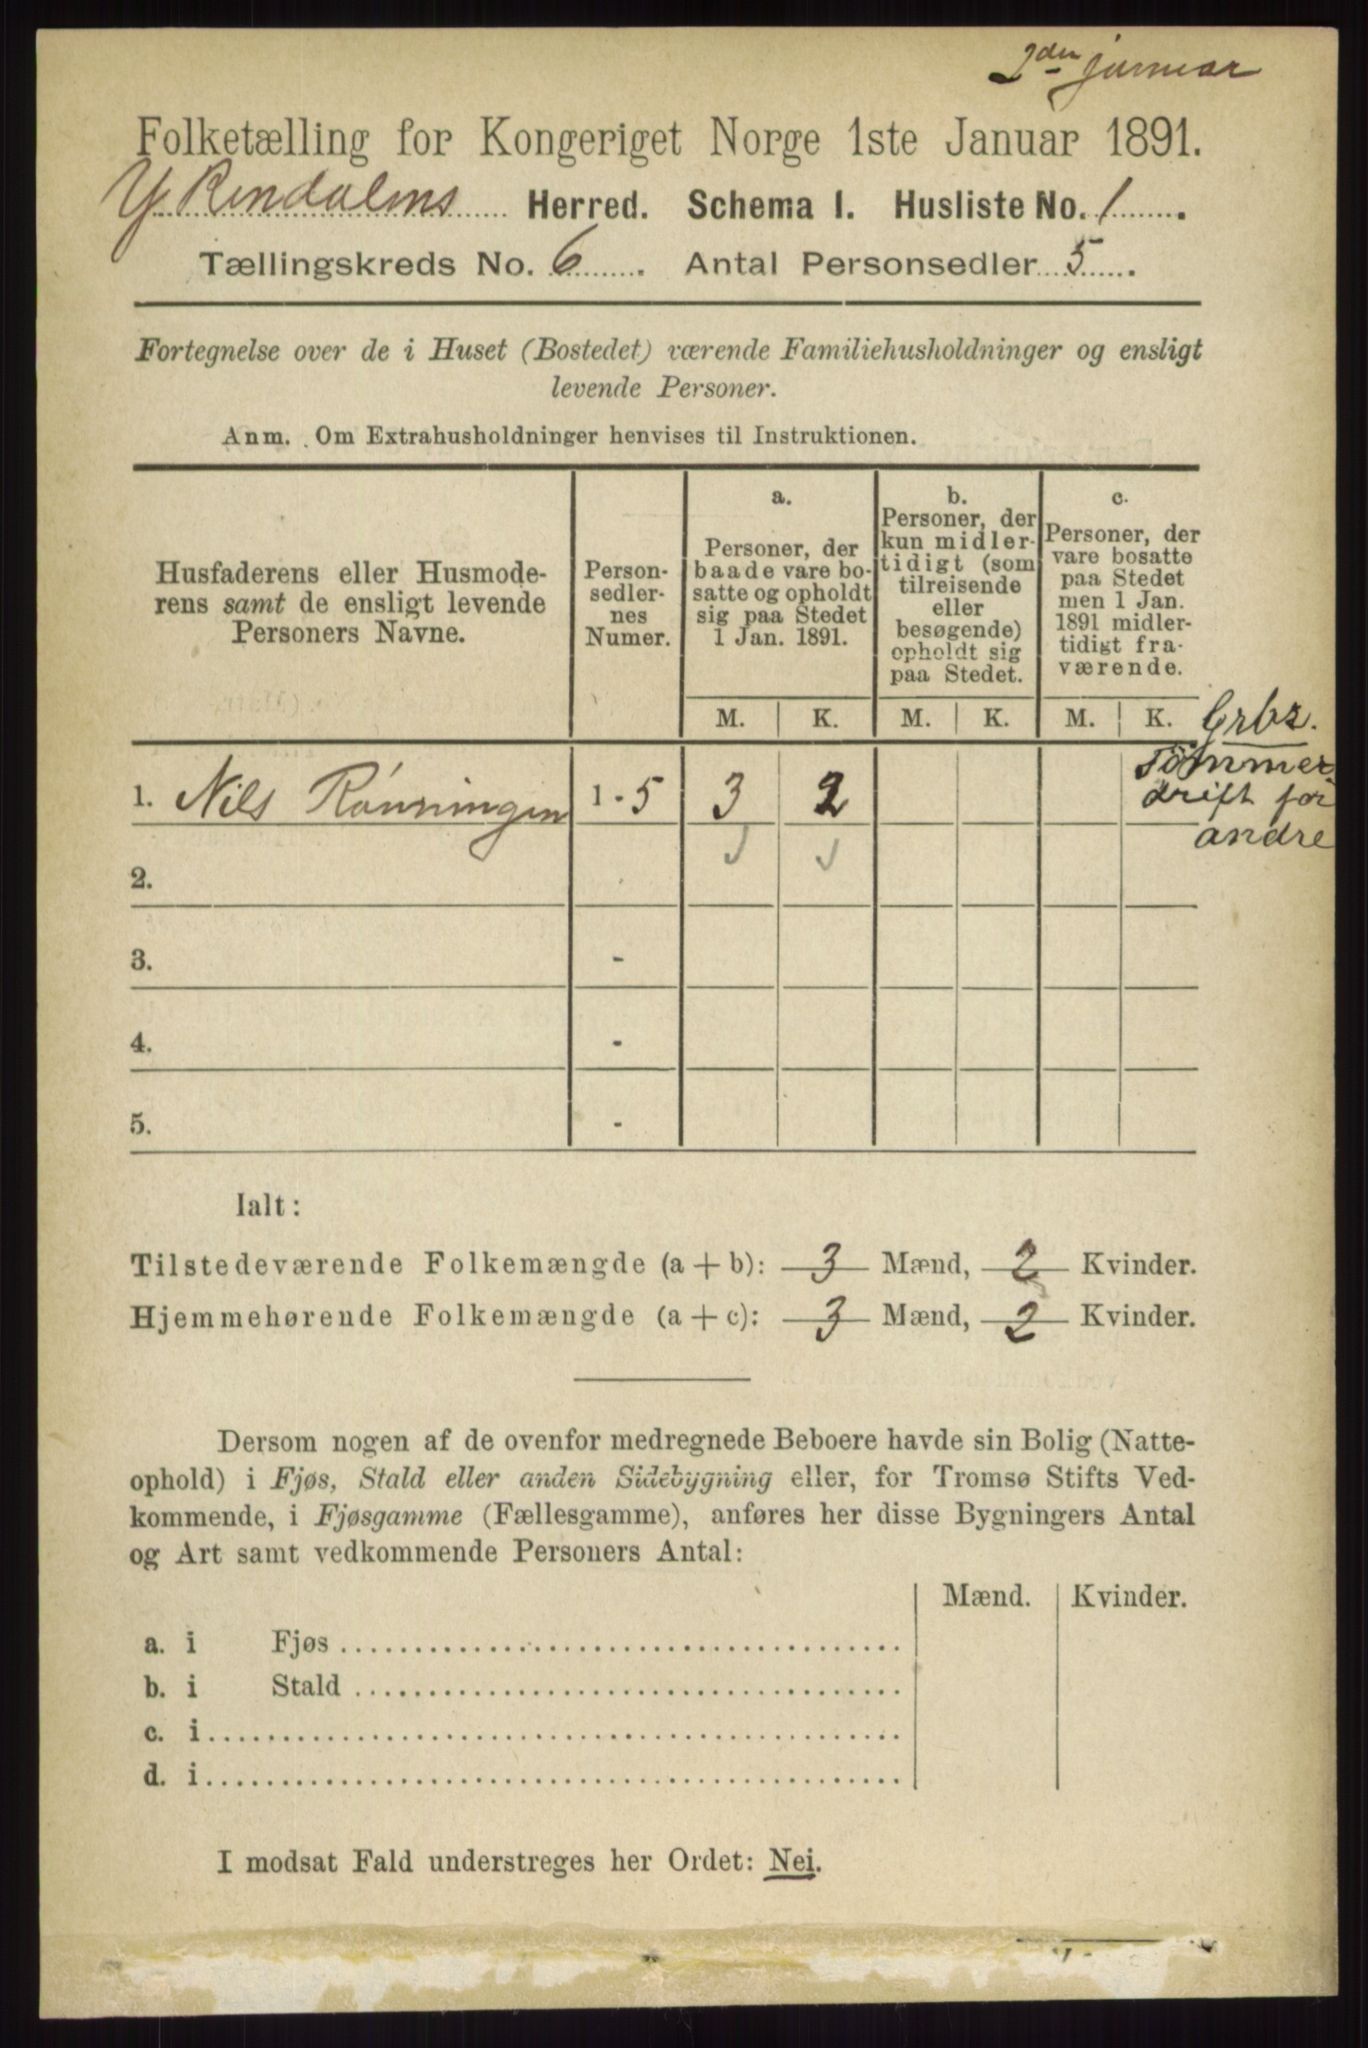 2den januar
Folketælling for Kongeriget Norge 1ste Januar 1891.
Y. Rendalens Herred. Schema I. Husliste No. 1.
Tællingskreds No. 6. Antal Personsedler 5.
Fortegnelse over de i Huset (Bostedet) værende Familiehusholdninger og ensligt
levende Personer.
Anm. Om Extrahusholdninger henvises til Instruktionen.
Husfaderens eller Husmode-
rens samt de ensligt levende
Personers Navne.
Person-
sedler-
nes
Numer.
a.
Personer, der
baade vare bo-
satte og opholdt
sig paa Stedet
1 Jan. 1891.
b.
Personer, der
kun midler-
tidigt (som
tilreisende
eller
besøgende)
opholdt sig
paa Stedet.
c.
Personer, der
vare bosatte
paa Stedet
men 1 Jan.
1891 midler-
tidigt fra-
værende.
M. K. M. K. M. K.
Grbr.
Tømmer
drift for
andre
1. Nils Rønningen 1 - 5 3 2
2.
3. -
4. -
5. -
Ialt:
Tilstedeværende Folkemængde (a + b): 3 Mænd, 2 Kvinder.
Hjemmehørende Folkemængde (a + c): 3 Mænd, 2 Kvinder.
Dersom nogen af de ovenfor medregnede Beboere havde sin Bolig (Natte-
ophold) i Fjøs, Stald eller anden Sidebygning eller, for Tromsø Stifts Ved-
kommende, i Fjøsgamme (Fællesgamme), anføres her disse Bygningers Antal
og Art samt vedkommende Personers Antal:
Mænd. Kvinder.
a. i Fjøs
b. i Stald
c. i
d. i
I modsat Fald understreges her Ordet: Nei.